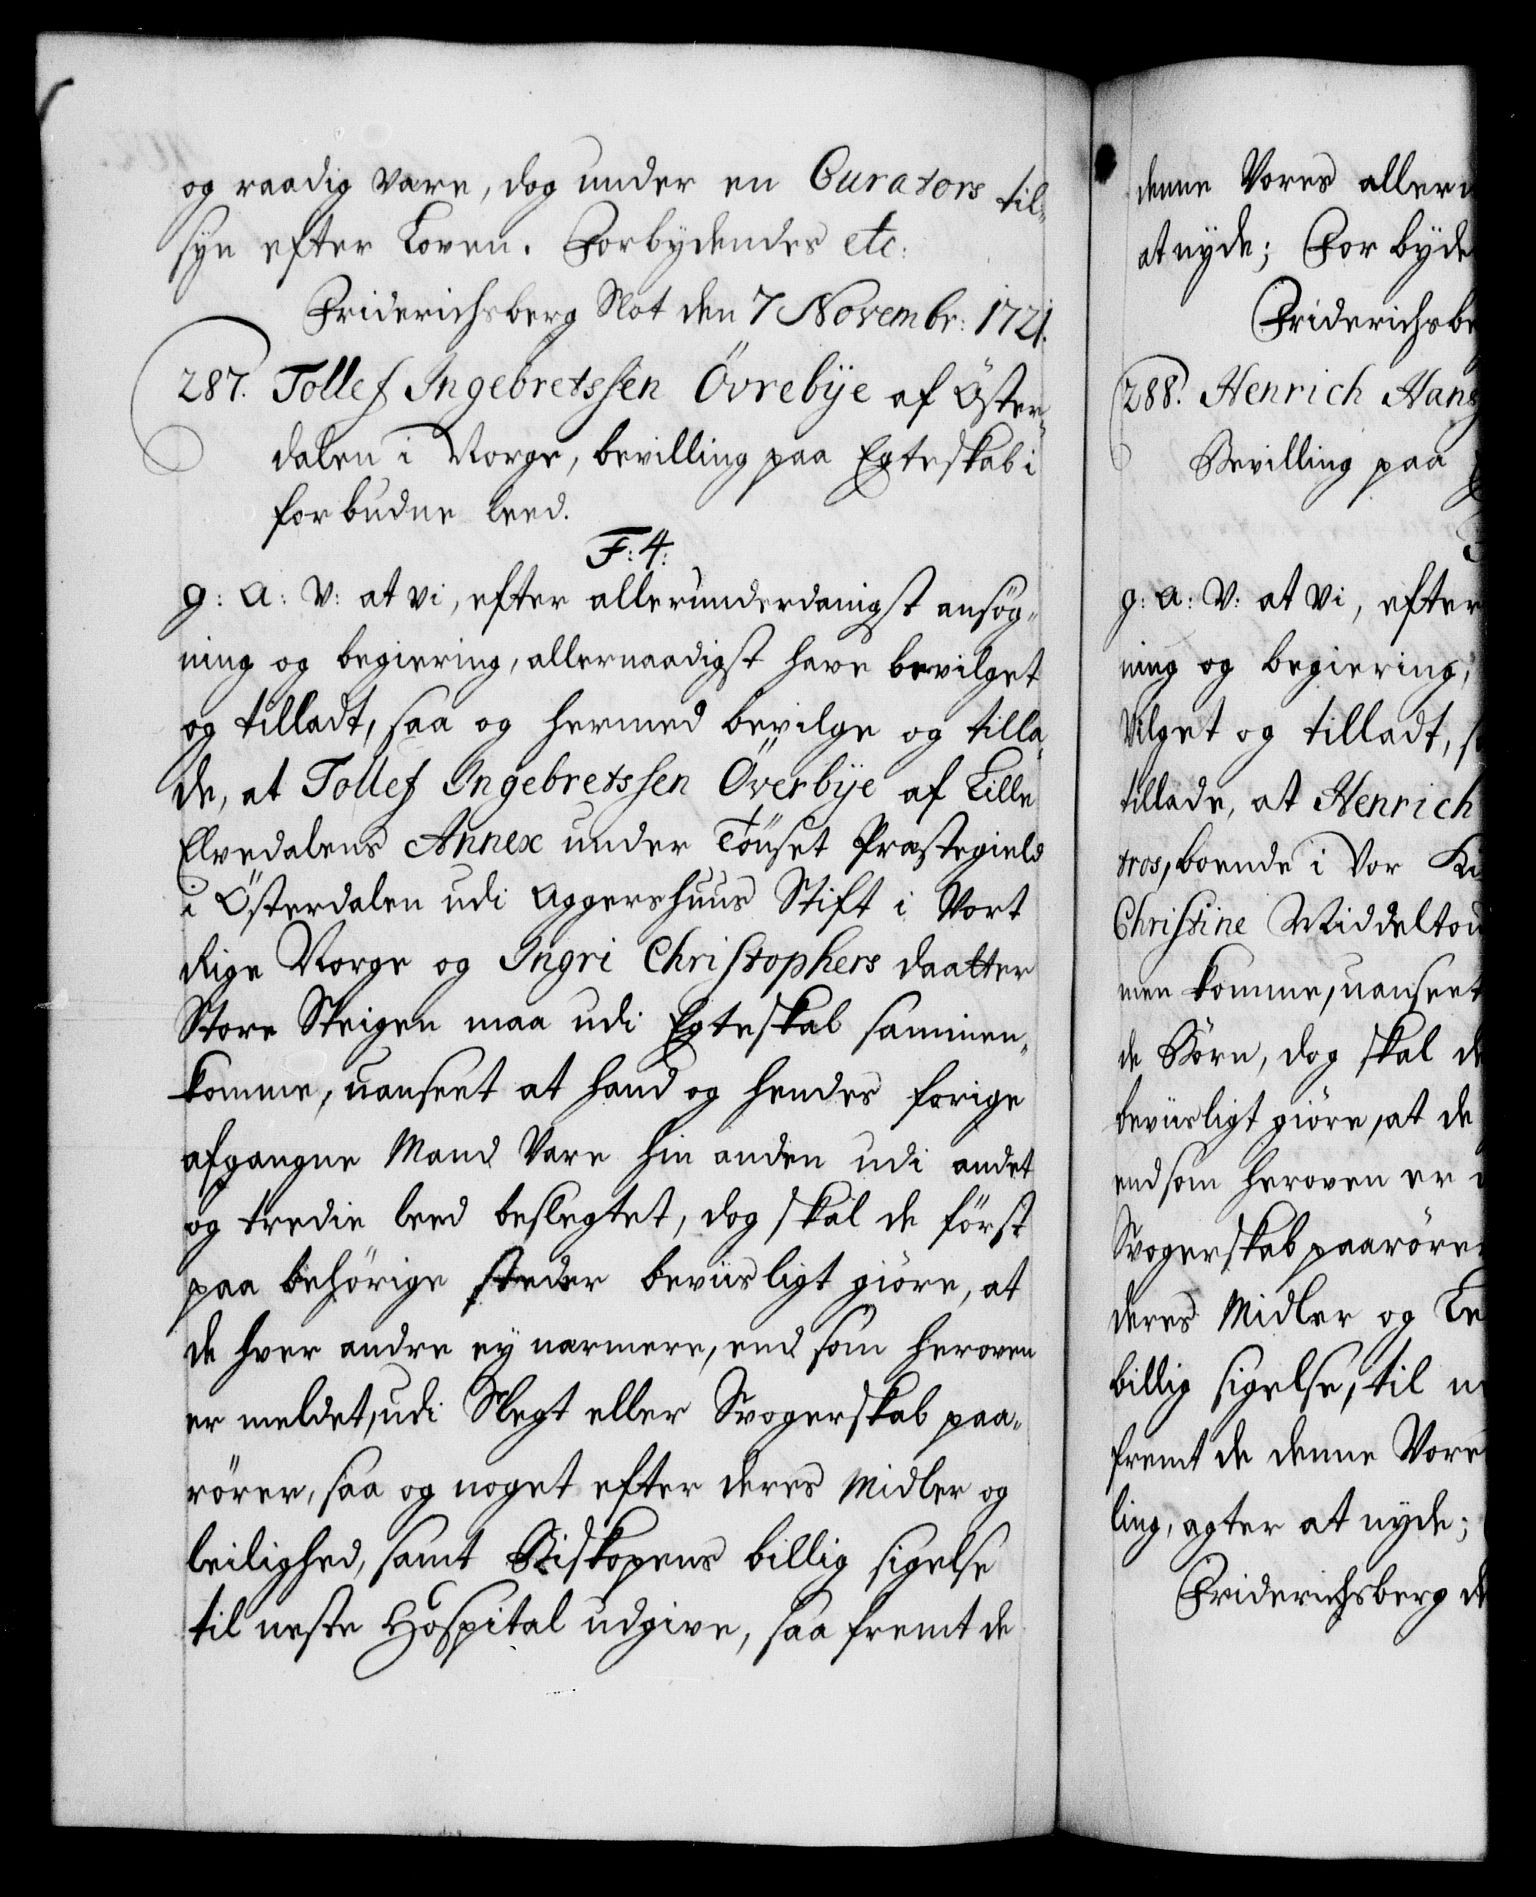 og raadig være, dog under en Curators til-
syn efter Loven. Forbydendes etc:
Friderichsberg Slot den 7 Novembr: 1721.
287. Tollef Ingebretssen Övrebÿe af Öster-
dalen i Norge, bevilling paa Egteskab i
forbudne leed.
F: 4:
G: A: V: at vi, efter allerunderdanigst ansög-
ning og begiering, allernaadigst have bevilget
og tilladt, saa og hermed bevilge og tilla-
de, at Tollef Ingebretssen Överbÿe af Lille
Elvedalens Annex under Tönset Præstegield
i Österdalen udi Aggershuus Stift i Vort
Rige Norge og Ingri Christophers daatter
Store Steigen maa udi Egteskab sammen-
komme, uanseet at hand og hendes forige
afgangne Mand Vare hin anden udi andet
og tredie leed beslegtet, dog skal de först
paa behörige steder beviisligt giöre, at
de hver andre ey nærmere, end som heroven
er meldet, udi Slegt eller Svogerskab paa-
rörer, saa og noget efter deres Midler og
leilighed, samt Biskopens billig sigelse
til neste Hospital udgive, saa fremt de
denne Vores aller
at nÿde; For bÿde
Friderichsbe
288. Henrich Hans
Bevilling paa
g: A: V: at vi, efter
ning og begiering,
vilget og tilladt,
tillade, at Henrich
tros, boende i Vor
Christine Middeltou
men komme, uanseet
de Börn, dog skal de
beviisligt giöre, at de
end som heroven er
Svogerskab paarörer
deres Midler og Le
billig sigelse, til n
fremt de denne Vore
ling, agter at nyde;
Friderichsberg d